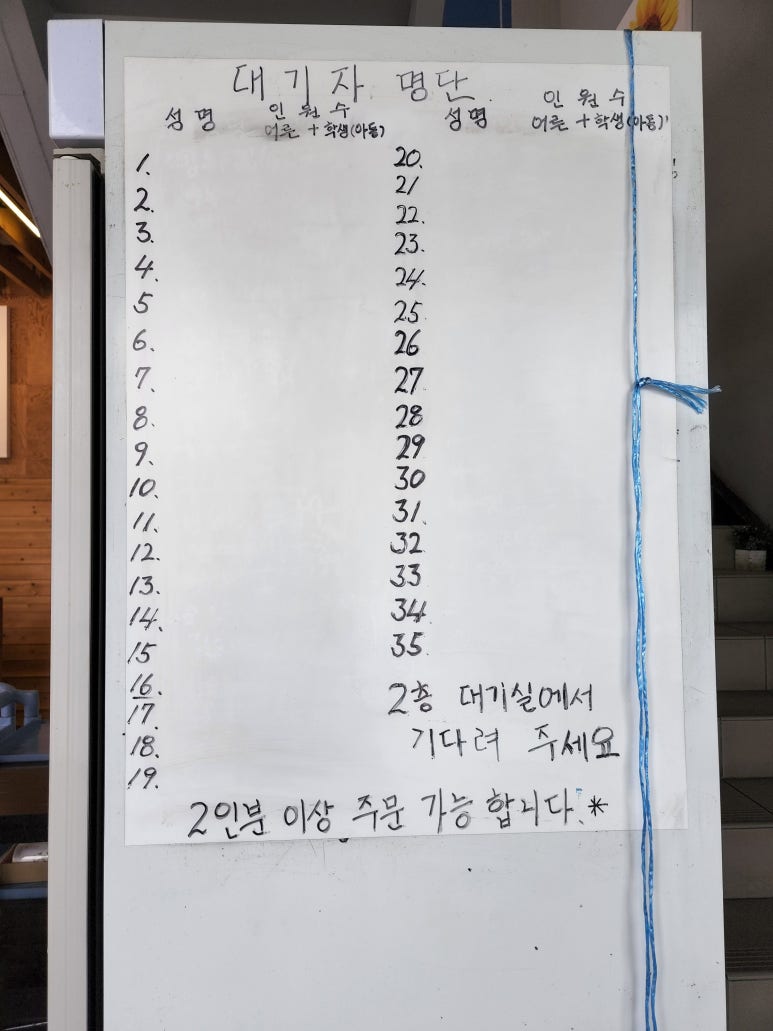 대기자 명단
성명 인원수 성명 인원수
어른 + 학생(아동) 어른 + 학생(아동)
1.
2.
3.
4.
5
6.
7.
8.
9.
10.
11.
12.
13.
14.
15
16.
17.
18.
19.
20.
21
22.
23.
24.
25.
26
27
28
29
30
31.
32
33
34
35.
2층 대기실에서
기다려 주세요
2인분 이상 주문 가능 합니다.*